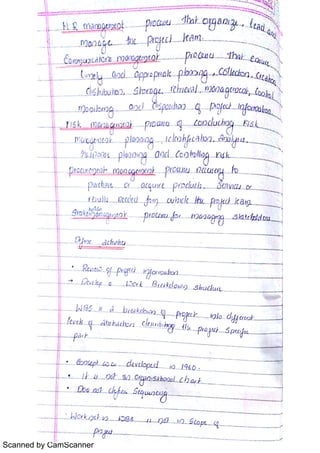 H.R management process that organize, lead and
manage the project team.
Communications management processes that ensure
timely and appropriate planning, collection, creation
distribution, storage, retrieval, management, control
monitoring and disposition of project information
risk management process of conducting risk
management planning, identification, analysis,
planning and controlling risk
procurement management process necessary to
purchase or acquire products, services or
results needed from outside the project team
management process for managing stakeholders
Define activities
• Review of project information
Develop a Work Breakdown structure
WBS is a breakdown of project into different
levels of the project specific
part
• concept was developed in 1960.
• It is not an organisational chart
• Does not define sequencing
Work not in WBS is not in scope of
project
Scanned by CamScanner